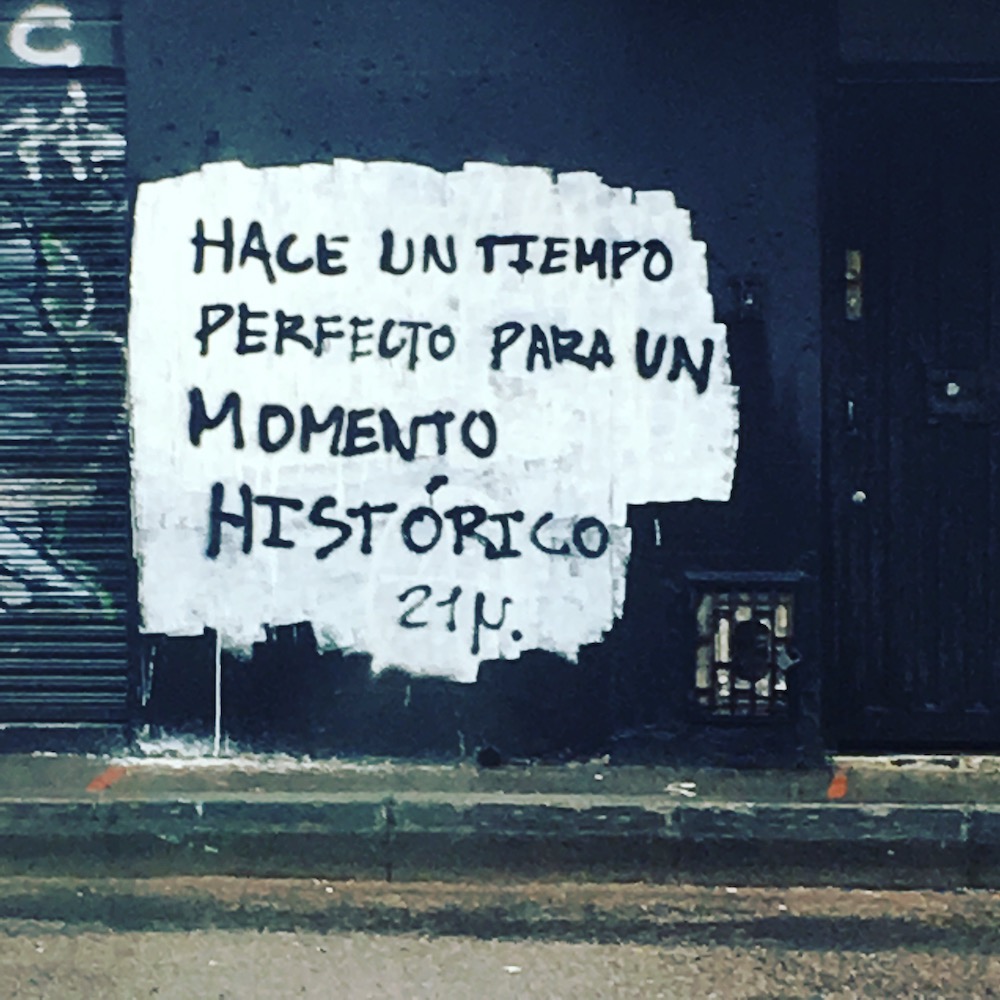 HACE UN TIEMPO
PERFECTO PARA UN
MOMENTO
HISTÓRICO
21N.